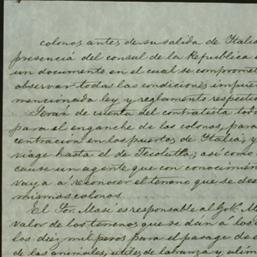 colonos antes de su salida de Italia
presencia del consul de la Republica
un documento en el cual se comprome
observar todas las condiciones impue
mencionada ley, y reglamento respecti
Serán de cuenta del contratista tod
para el enganche de los colonos, para
centracion en los puertos de Italia, y
viage hasta el de Tecolutla; así como
cause un agente que con conocimien
vaya a reconocer el terreno que se des
mismos colonos.
El Sor. Masi es responsable al Gob.
valor de los terrenos que se dán á los
los diez mil pesos para el pasage de
de los animales, utiles de labranza y